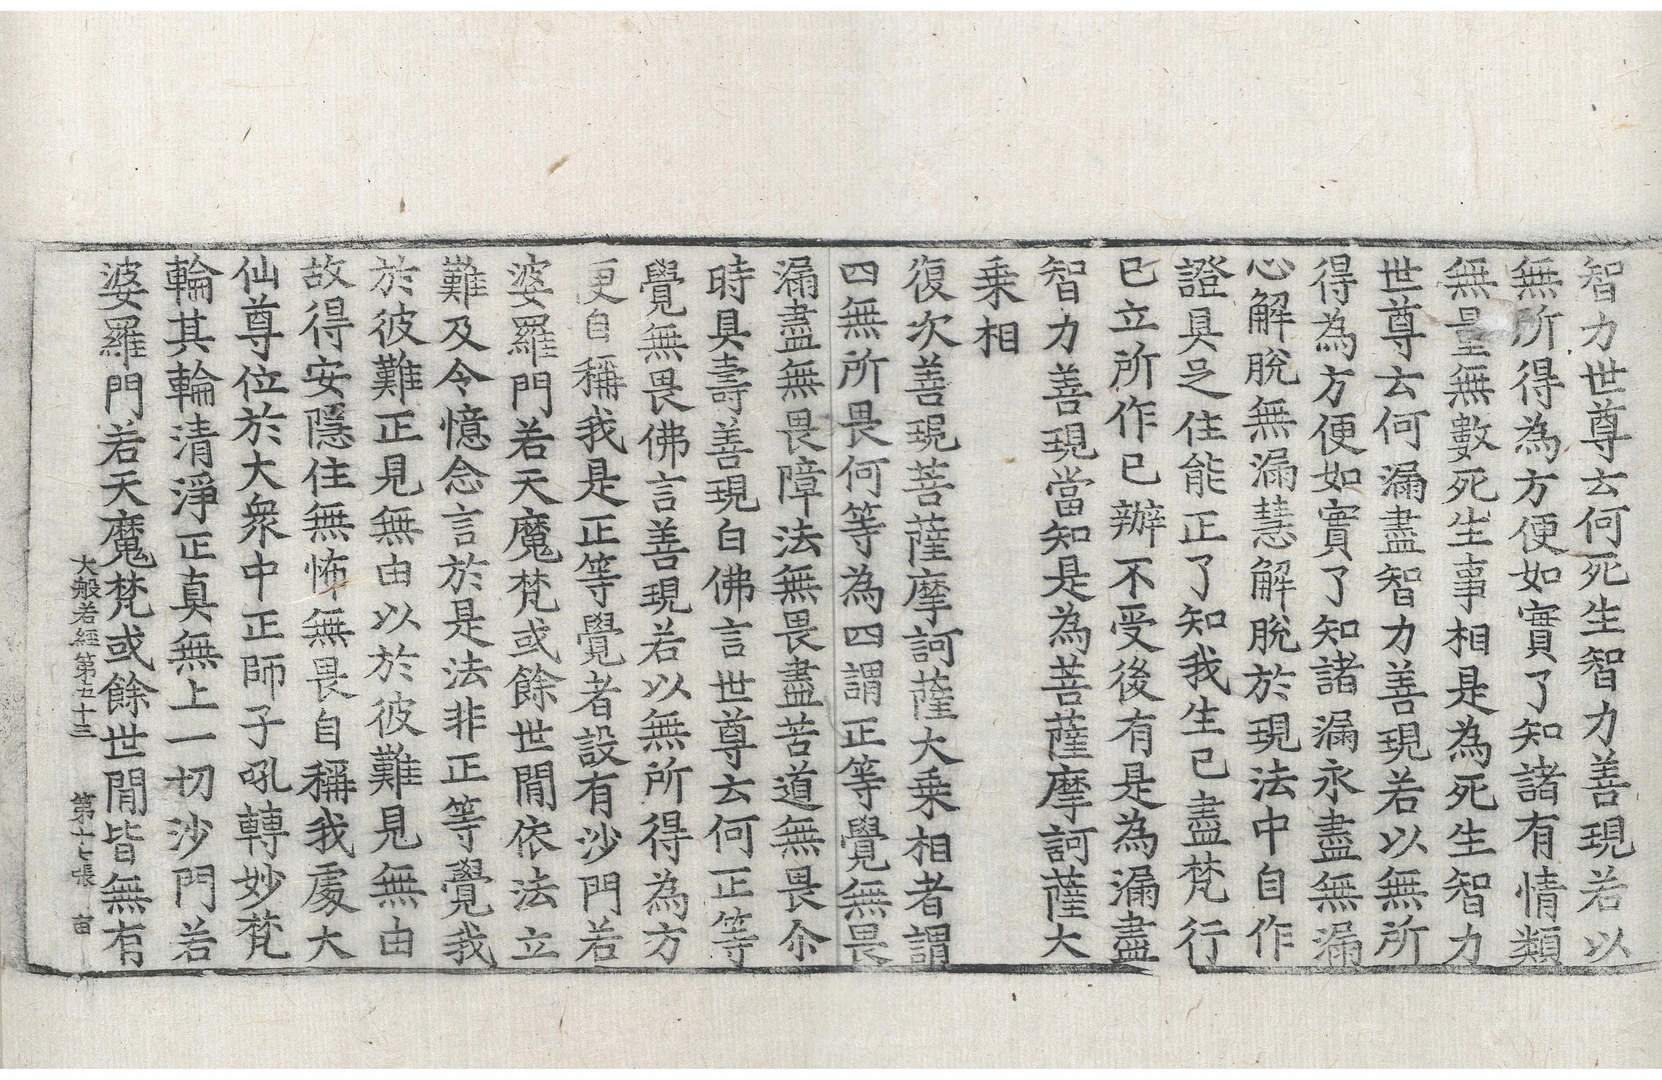 智力世尊云何死生智力善現若以
無所得為方便如實了知諸有情類
無量無數死生事相是為死生智力
世尊云何漏盡智力善現若以無所
得為方便如實了知諸漏永盡無漏
心解脫無漏慧解脫於現法中自作
證具足住能正了知我生已盡梵行
已立所作已辦不受後有是為漏盡
智力善現當知是為菩薩摩訶薩大
乗相
復次善現菩薩摩訶薩大乗相者謂
四無所畏何等為四謂正等覺無畏
漏盡無畏障法無畏盡苦道無畏尒
時具壽善現白佛言世尊云何正等
覺無畏佛言善現若以無所得為方
便自稱我是正等覺者設有沙門若
婆羅門若天魔梵或餘世閒依法立
難及令憶念言於是法非正等覺我
於彼難正見無由以於彼難見無由
故得安隱住無怖無畏自稱我處大
仙尊位於大衆中正師子吼轉妙梵
輪其輪清淨正真無上一切沙門若
婆羅門若天魔梵或餘世閒皆無有
大般若經第五十三 第十七張 宙